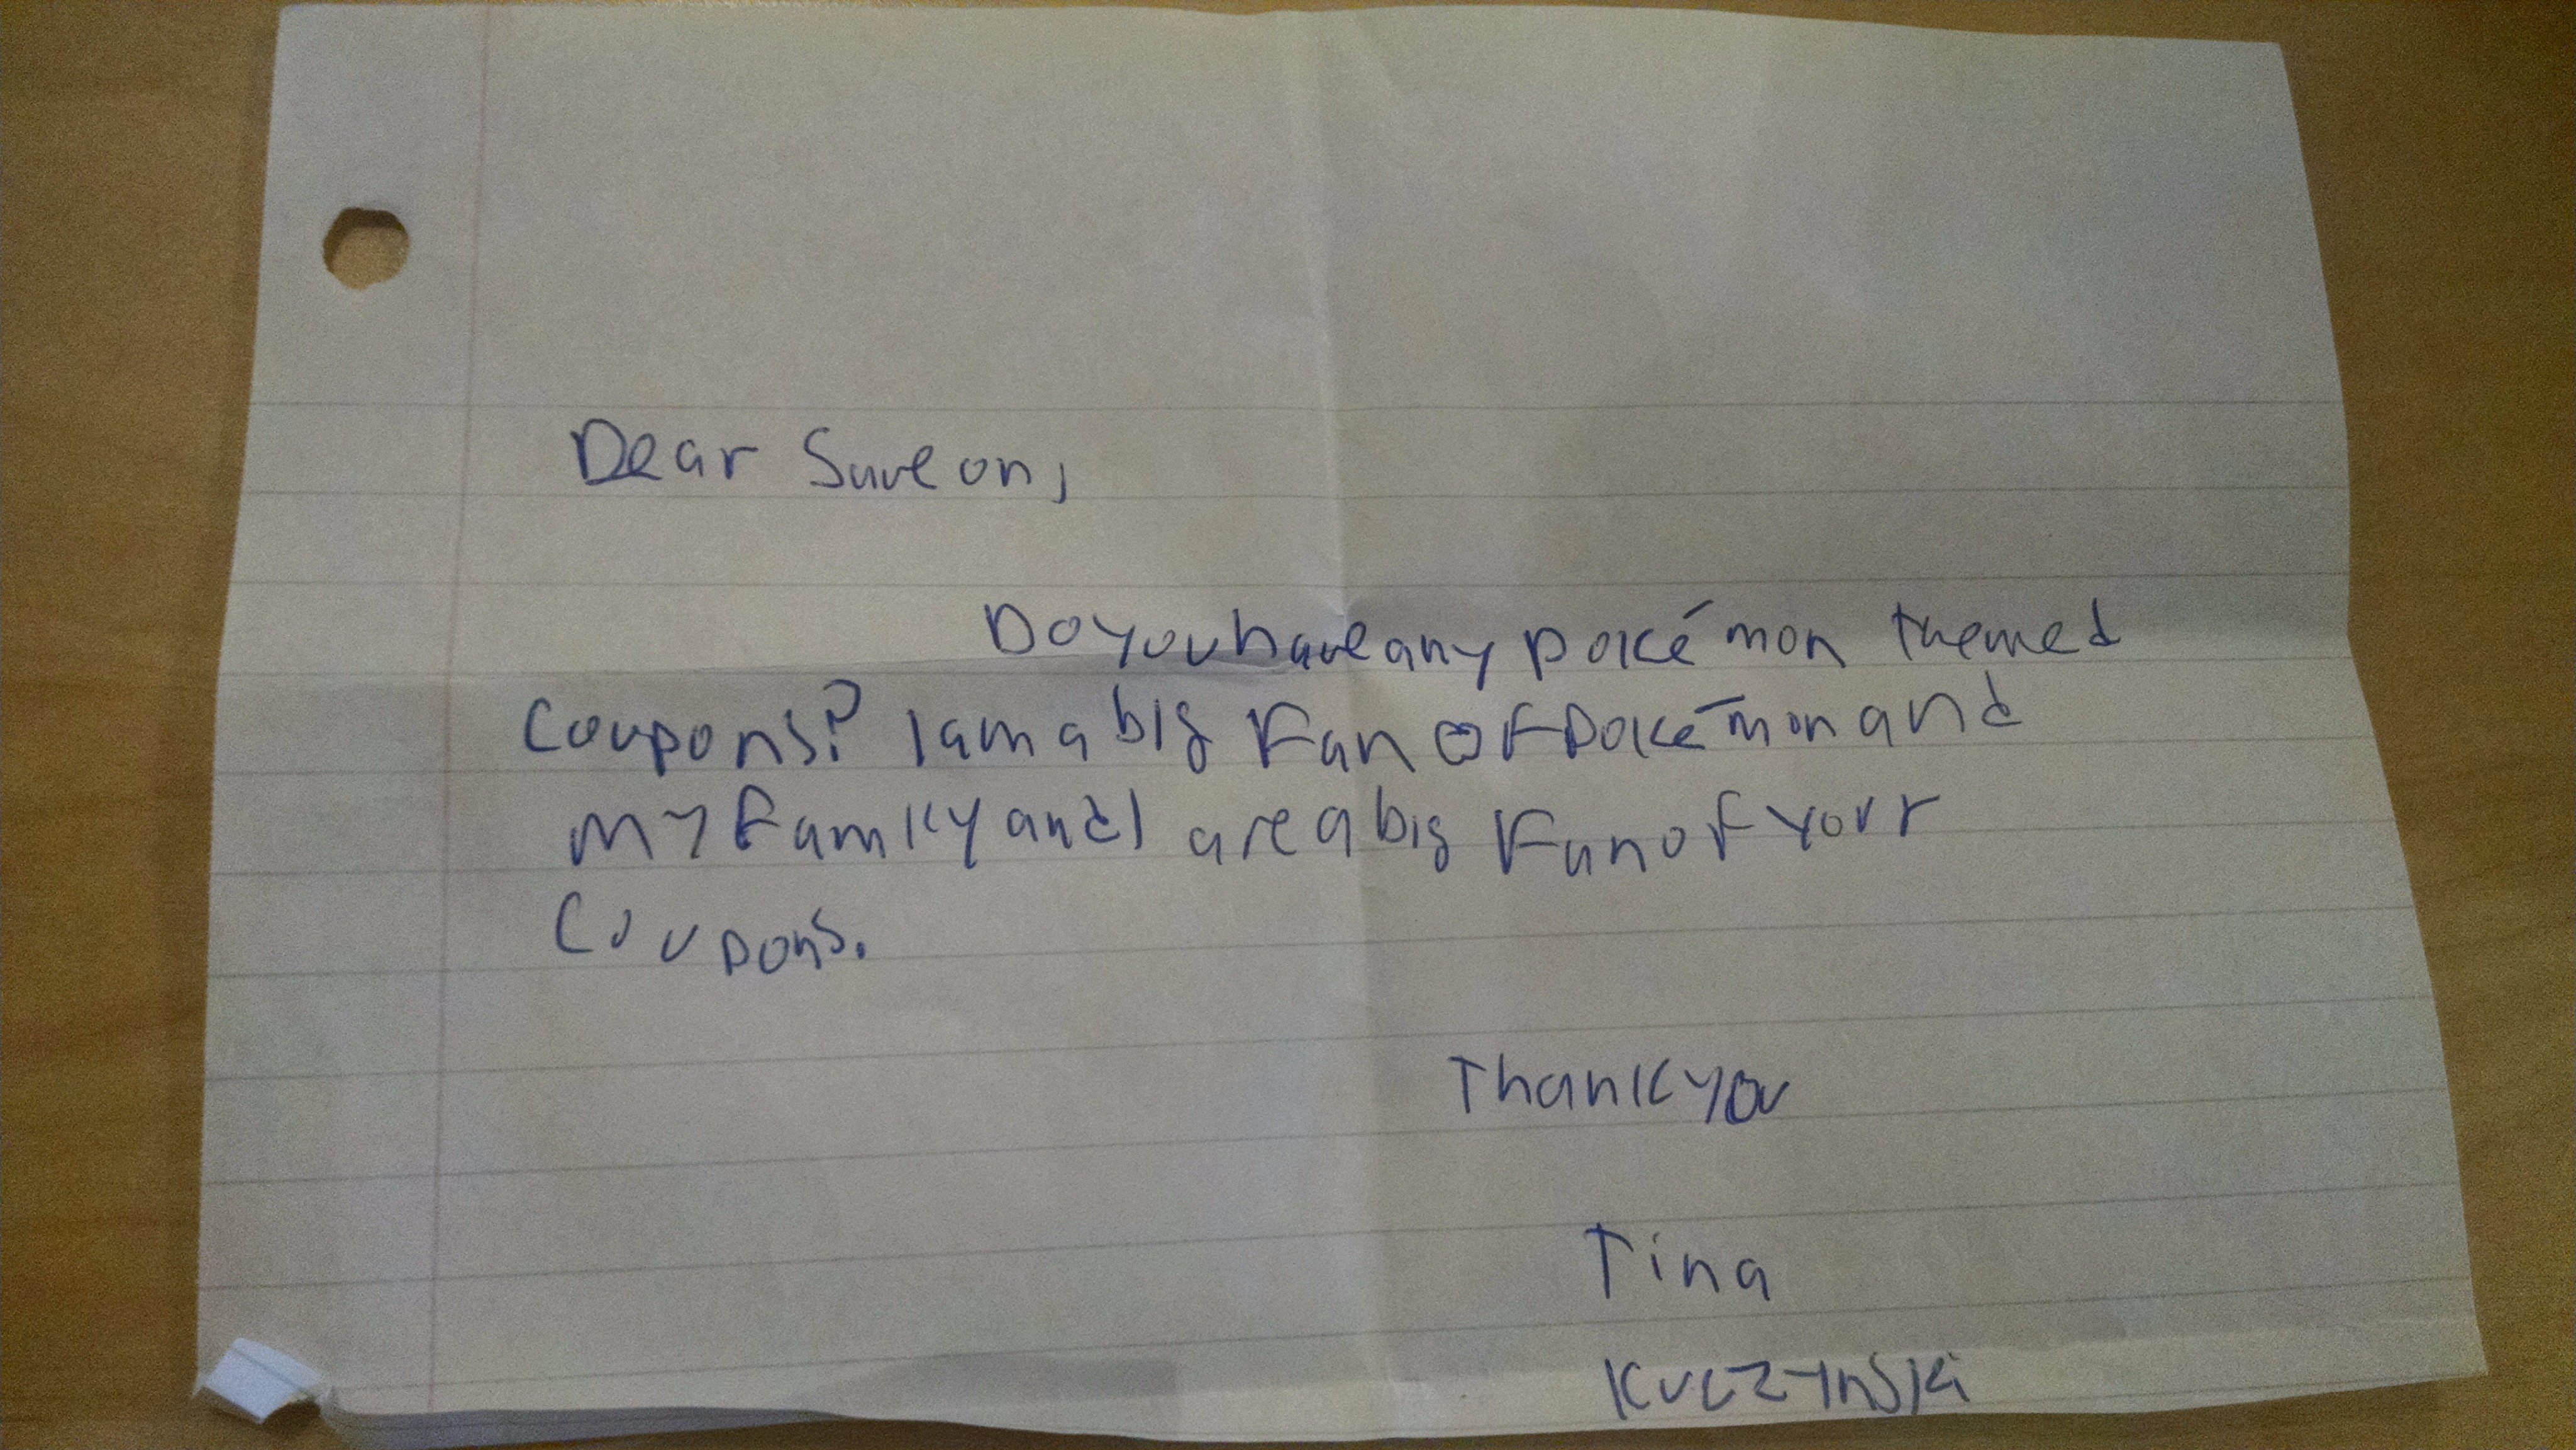 Dear Saveon,
Do you have any pokémon themed
coupons? I am a big Fan of Pokémon and
my Family and I are a big Fan of your
Coupons.
Thank you
Tina
Kuczynski